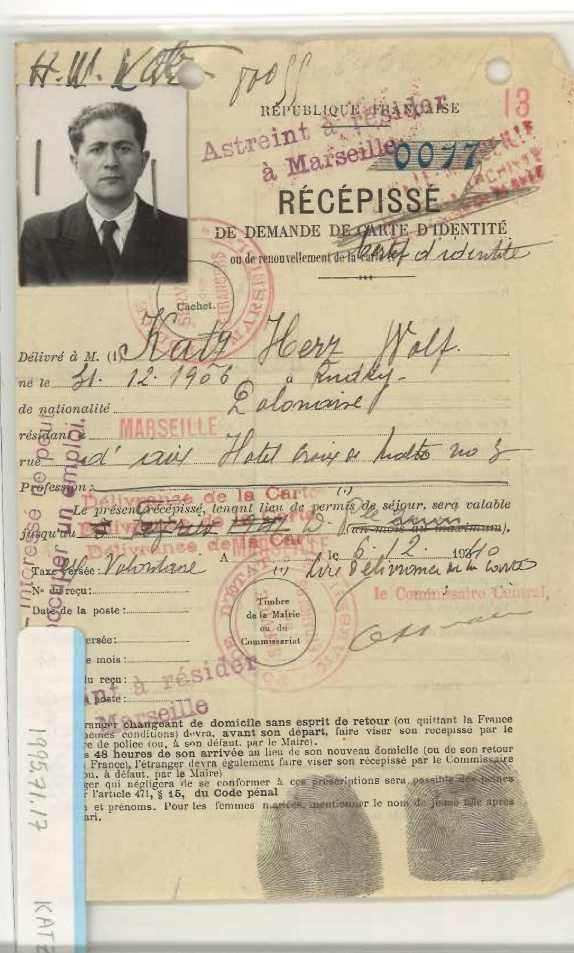 H. W. Katz
RÉPUBLIQUE FRANÇAISE
13
Astreint à résider
à Marseille
0077
RÉCÉPISSÉ
DE DEMANDE DE CARTE D'IDENTITÉ
ou de renouvellement de la carte d'identité
Cachet.
Délivré à M. (1) Katz Herz Wolf.
né le 31.12.1906 à Rudky
de nationalité Polonaise
résidant à MARSEILLE
rue d'aix Hotel Croix de Malte no 3
Profession:
Délivrance de la Carte
Le présent récépissé, tenant lieu de permis de séjour, sera valable
Délivrance de la Carte
jusqu'au (un mois au maximum),
Délivrance de la Carte
A MARSEILLE le 6.12.1940
Taxe versée: Volontaire
N° du reçu:
le Commissaire Central,
Date de la poste:
Timbre
de la Mairie
ou du
Commissariat
versée:
e mois:
du reçu:
poste:
int à résider
Marseille
Interessé ne peut
occuper un emploi.
tranger changeant de domicile sans esprit de retour (ou quittant la France
mêmes conditions) devra, avant son départ, faire viser son récépissé par le
re de police (ou, à son défaut, par le Maire).
s 48 heures de son arrivée au lieu de son nouveau domicile (ou de son retour
France), l'étranger devra également faire viser son récépissé par le Commissaire
ou, à défaut, par le Maire)
ger qui négligera de se conformer à ces prescriptions sera passible des peines
r l'article 471, § 15, du Code pénal
m et prénoms. Pour les femmes mariées, mentionner le nom de jeune fille après
ari.
1995.71.17 KATZ